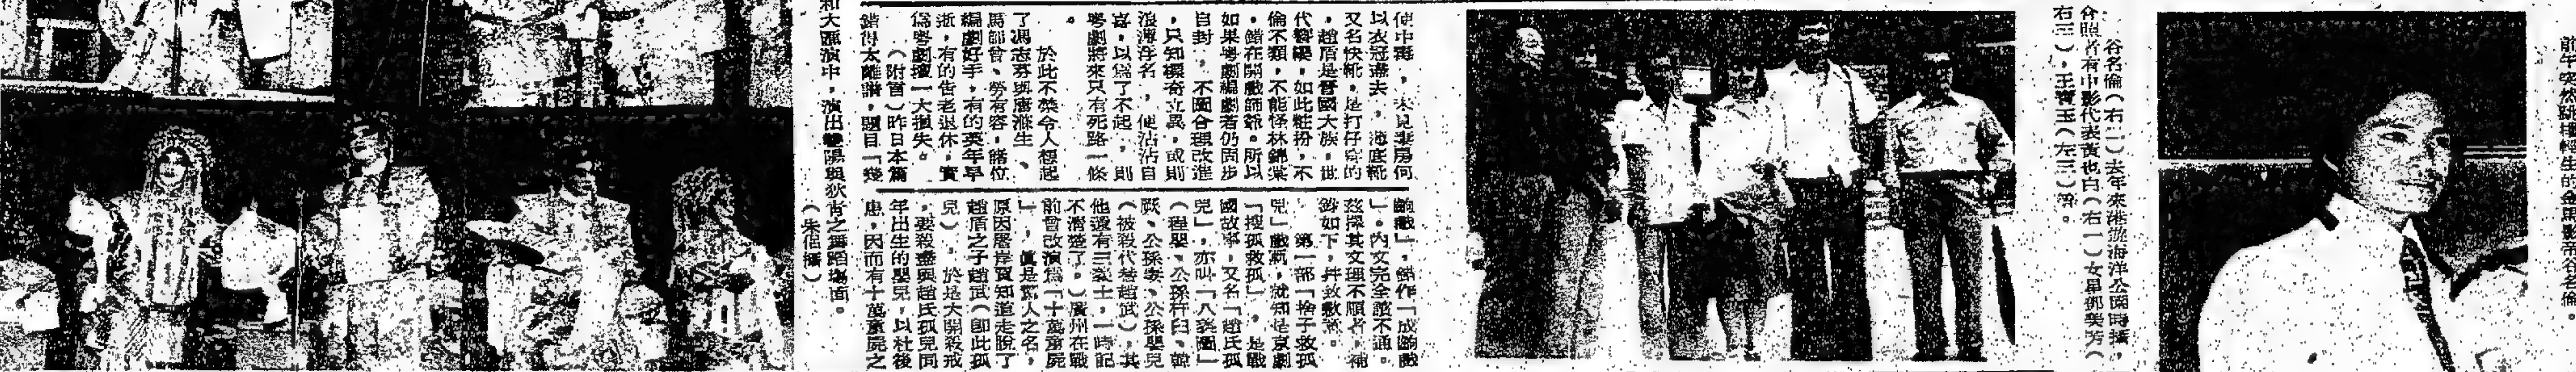 前年突然跳樓輕生的金馬影帝谷名倫。
谷名倫(右二)去年來港遊海洋公園時攝,
合照者有中影代表黃也白(右一)女星鄧美芳(
右三),王寶玉(左三)等。
使中毒,未見妻房何
以衣冠盡去,海底靴
又名快靴,是打仔穿的
,趙盾是晉國大族,世
代簪纓,如此粧扮,不
倫不類,不能怪林錦棠
,錯在開戲師爺。所以
如果粵劇編劇若仍固步
自封,不圖合理改進
,只知標奇立異,或則
浪得浮名,便沾沾自
喜,以爲了不起,則
粵劇將來只有死路一條
。
於此不禁令人想起
了馮志芬與唐滌生、
馬師曾、勞有容,諸位
編劇好手,有的英年早
逝,有的告老退休,實
爲粵劇壇一大損失。
(附言)昨日本篇
錯得太離譜,題目「幾
齣戲」,錯作「成齣戲
」。內文完全讀不通。
茲擇其文理不順者,補
誌如下,幷致歉意。
第一部「捨子救孤
兒」戲軌,就知是京劇
「搜孤救孤」,是戰
國故事,又名「趙氏孤
兒」,亦叫「八義圖」
(程嬰、公孫杵臼、韓
厥、公孫妻、公孫嬰兒
(被殺代替趙武),其
他還有三義士,一時記
不清楚了。)廣州在戰
前曾改演爲「十萬童屍
」,眞是驚人之名,
原因屠岸賈知道走脫了
趙盾之子趙武(卽此孤
兒),於是大開殺戒
,要殺盡與趙氏孤兒同
年出生的嬰兒,以杜後
患,因而有十萬童屍之
和大匯演中,演出雙陽與狄青之舞蹈場面。
(朱侶攝)